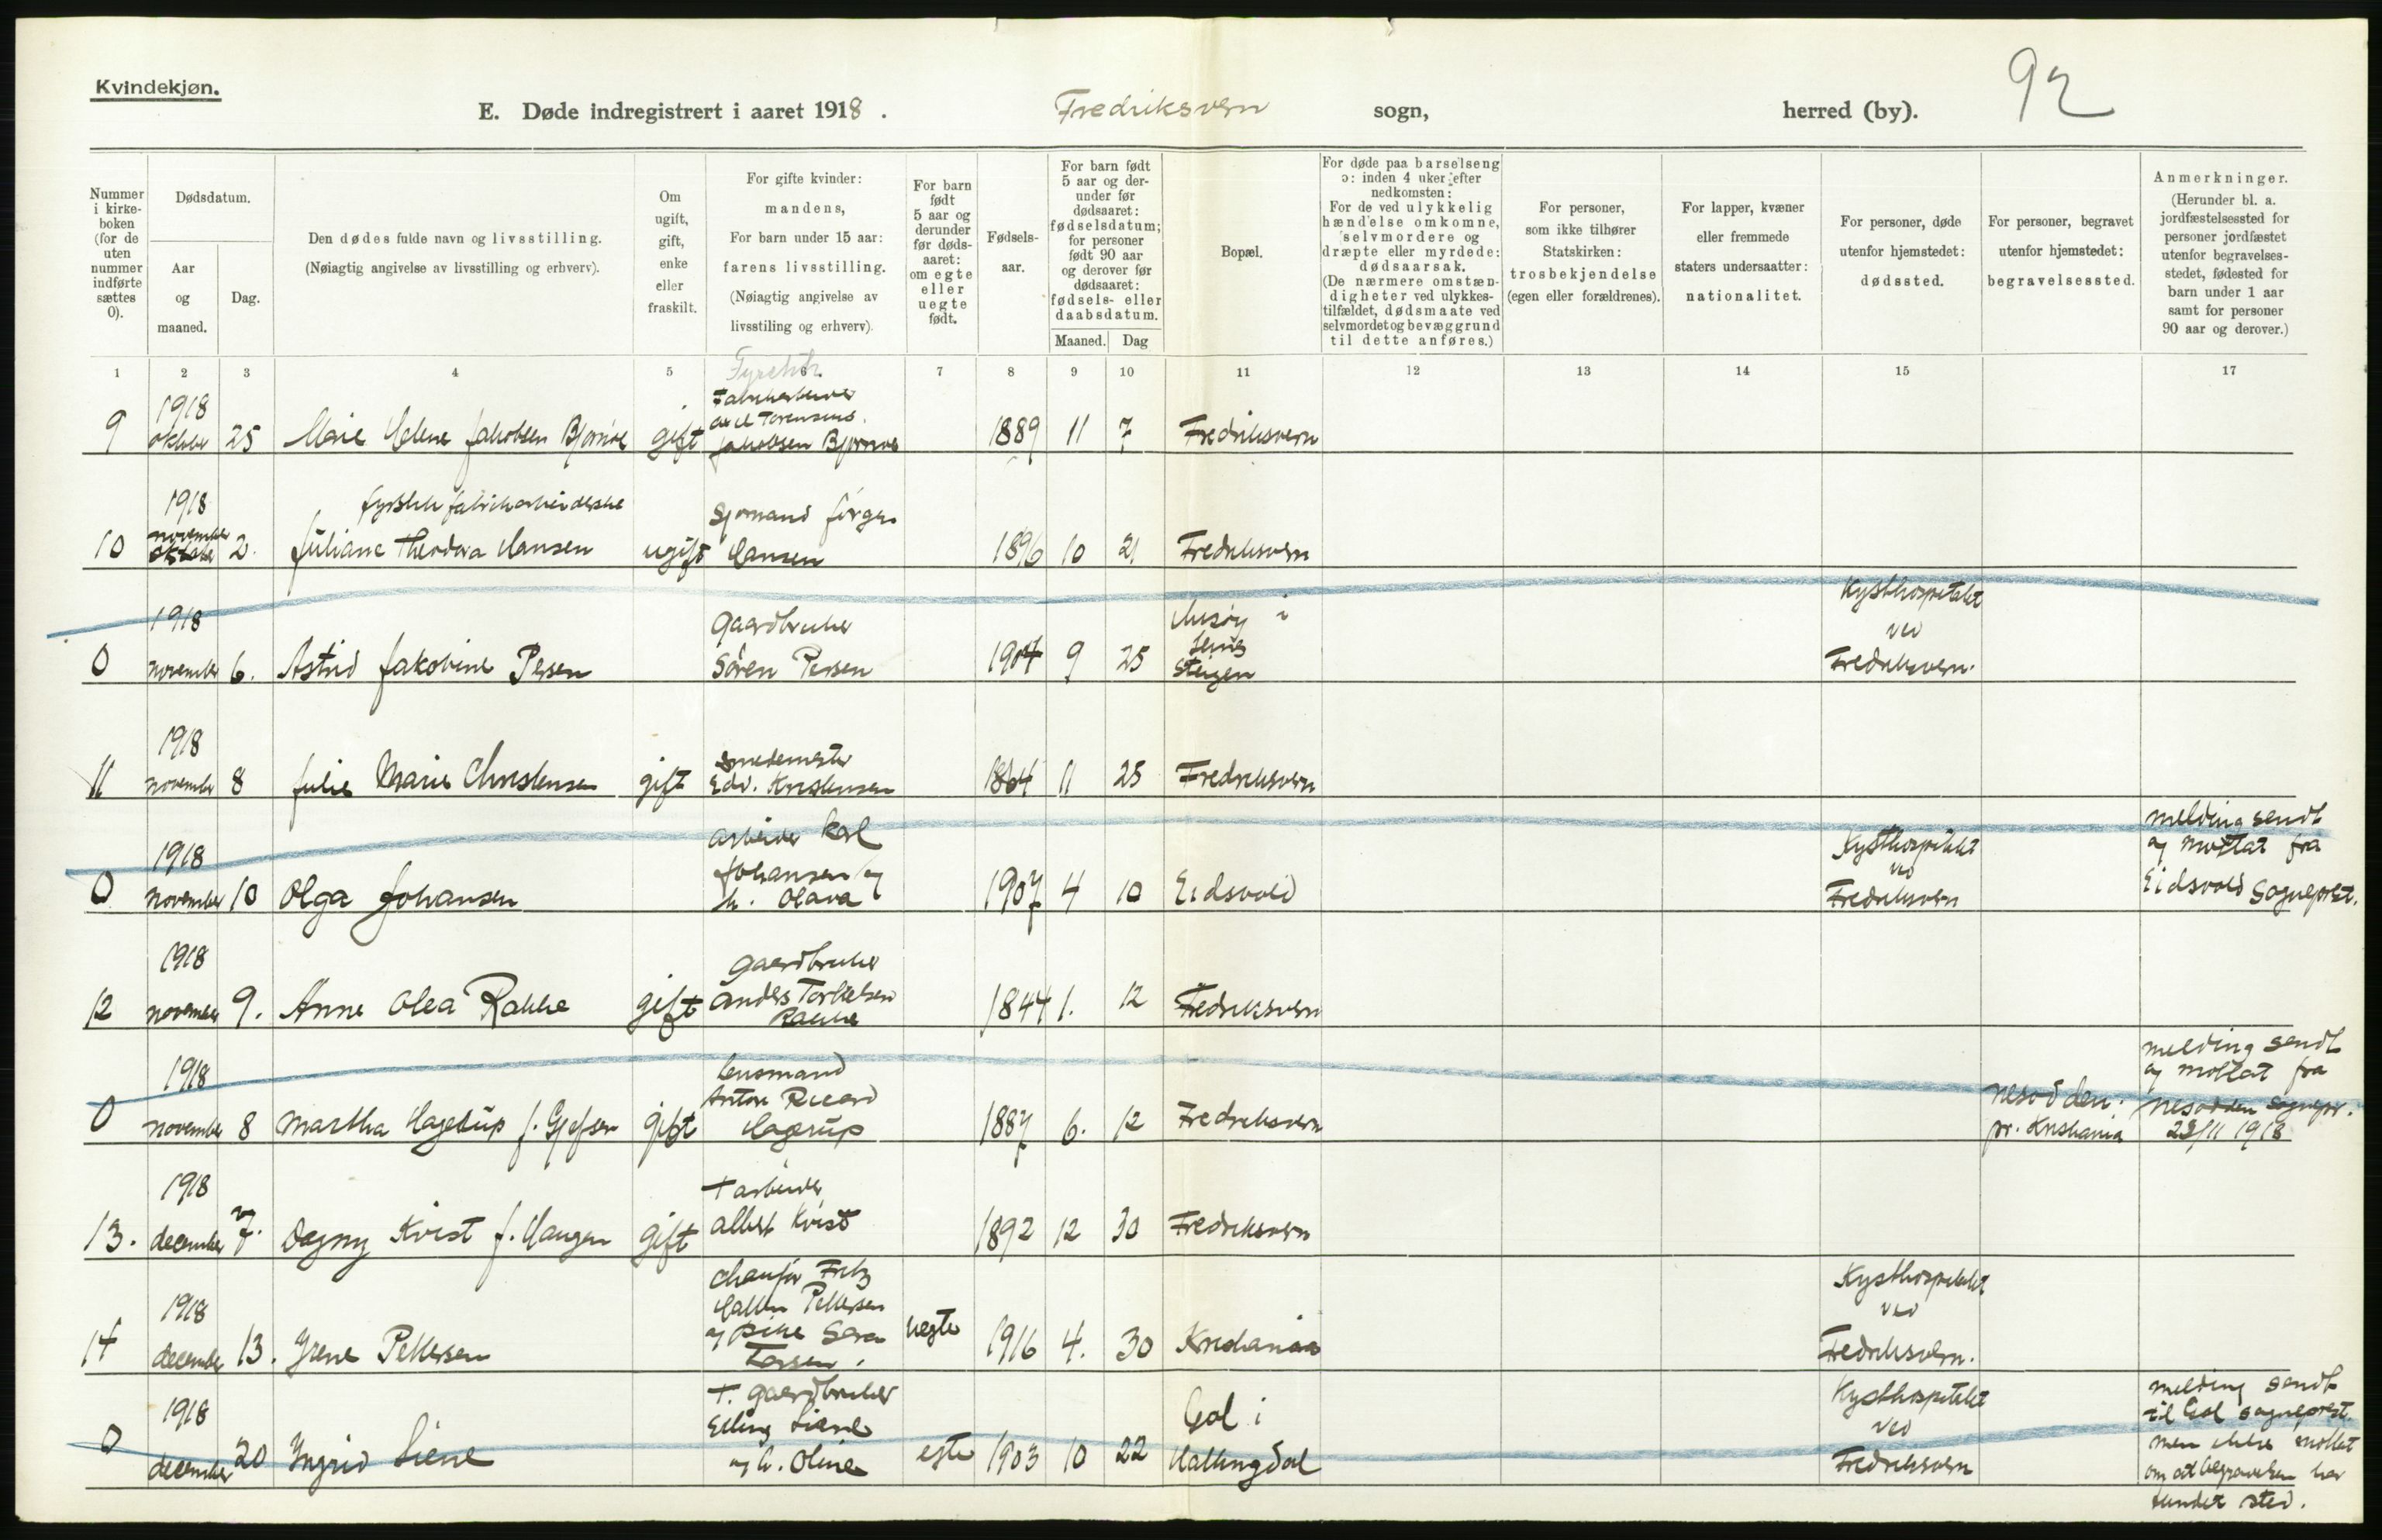 Kvindekjøn.
E. Døde indregistrert i aaret 1918. Fredriksvern sogn, herred (by). 92
Nummer i kirke-boken (for de uten nummer indførte sættes 0).
Dødsdatum.
Aar og maaned.
Dag.
Den dødes fulde navn og livsstilling.
(Nøiagtig angivelse av livsstilling og erhverv).
Om ugift, gift, enke eller fraskilt.
For gifte kvinder: mandens,
For barn under 15 aar: farens livsstilling.
(Nøiagtig angivelse av livsstiling og erhverv).
For barn født 5 aar og derunder før døds-aaret: om egte eller uegte født.
Fødsels-aar.
For barn født 5 aar og der-under før dødsaaret: fødselsdatum; for personer født 90 aar og derover før dødsaaret: fødsels- eller daabsdatum.
Maaned. Dag
Bopæl.
For døde paa barselseng ɔ: inden 4 uker efter nedkomsten:
For de ved ulykkelig hændelse omkomne, selvmordere og dræpte eller myrdede: dødsaarsak.
(De nærmere omstæn-digheter ved ulykkes-tilfældet, dødsmaate ved selvmordet og bevæggrund til dette anføres.)
For personer, som ikke tilhører Statskirken: trosbekjendelse (egen eller forældrenes).
For lapper, kvæner eller fremmede staters undersaatter: nationalitet.
For personer, døde utenfor hjemstedet: dødssted.
For personer, begravet utenfor hjemstedet: begravelsessted.
Anmerkninger.
(Herunder bl. a. jordfæstelsessted for personer jordfæstet utenfor begravelses-stedet, fødested for barn under 1 aar samt for personer 90 aar og derover.)
1 2 3 4 5 6 7 8 9 10 11 12 13 14 15 17
9 1918 oktober 25 Marie Helene Jakobsen Bjørnøe gift Jakobsen Bjørnøe 1889 11 7 Fredriksvern
10 1918 november oktober 2. fyrstikk fabrikarbeiderske Juliane Theodora Hansen ugift Sjømand Jörgen Hansen 1896 10 21 Fredriksvern
0 1918 november 6. Astrid Jakobine Persen Gaardbruker Sören Persen 1904 9 25 i Steigen Kysthospitalet ved Fredriksvern.
11 1918 november 8 Julie Marie Christensen gift Smedemester Edv. Kristensen 1864 11 25 Fredriksvern
0 1918 november 10 Olga Johansen arbeider Karl Johansen og h. Olava 1907 4 10 Eidsvold Kysthospitalet ved Fredriksvern melding sendt og mottat fra Eidsvold Sogneprst.
12 1918 november 9. Anne Olea Rakke gift Gaardbruker Anders Torkelsen Rakke 1844 1. 12 Fredriksvern
0 1918 november 8 Martha Hagerup f. gift Lensmand Anton Hagerup 1887 6. 12 Fredriksvern Nesodden. pr. Kristiania melding sendt og mottat fra Nesodden sognepr. 23/11 1918
13. 1918 december 7. Dagny Kvist f. Haugen gift + arbeider Albert Kvist 1892 12 30 Fredriksvern
14 1918 december 13. Irene Pettersen chaufør Fritz Pettersen og pike Sara uegte 1916 4. 30 Kristiania Kysthospitalet ved Fredriksvern.
0 1918 december 20 Ingrid Liene +. gaardbruker Elling Liene og h. Oline egte 1903 10 22 Gol i Hallingdal Kysthospitalet ved Fredriksvern melding sendt til Gol sogneprest men ikke mottat om at begravelsen har fundet sted.